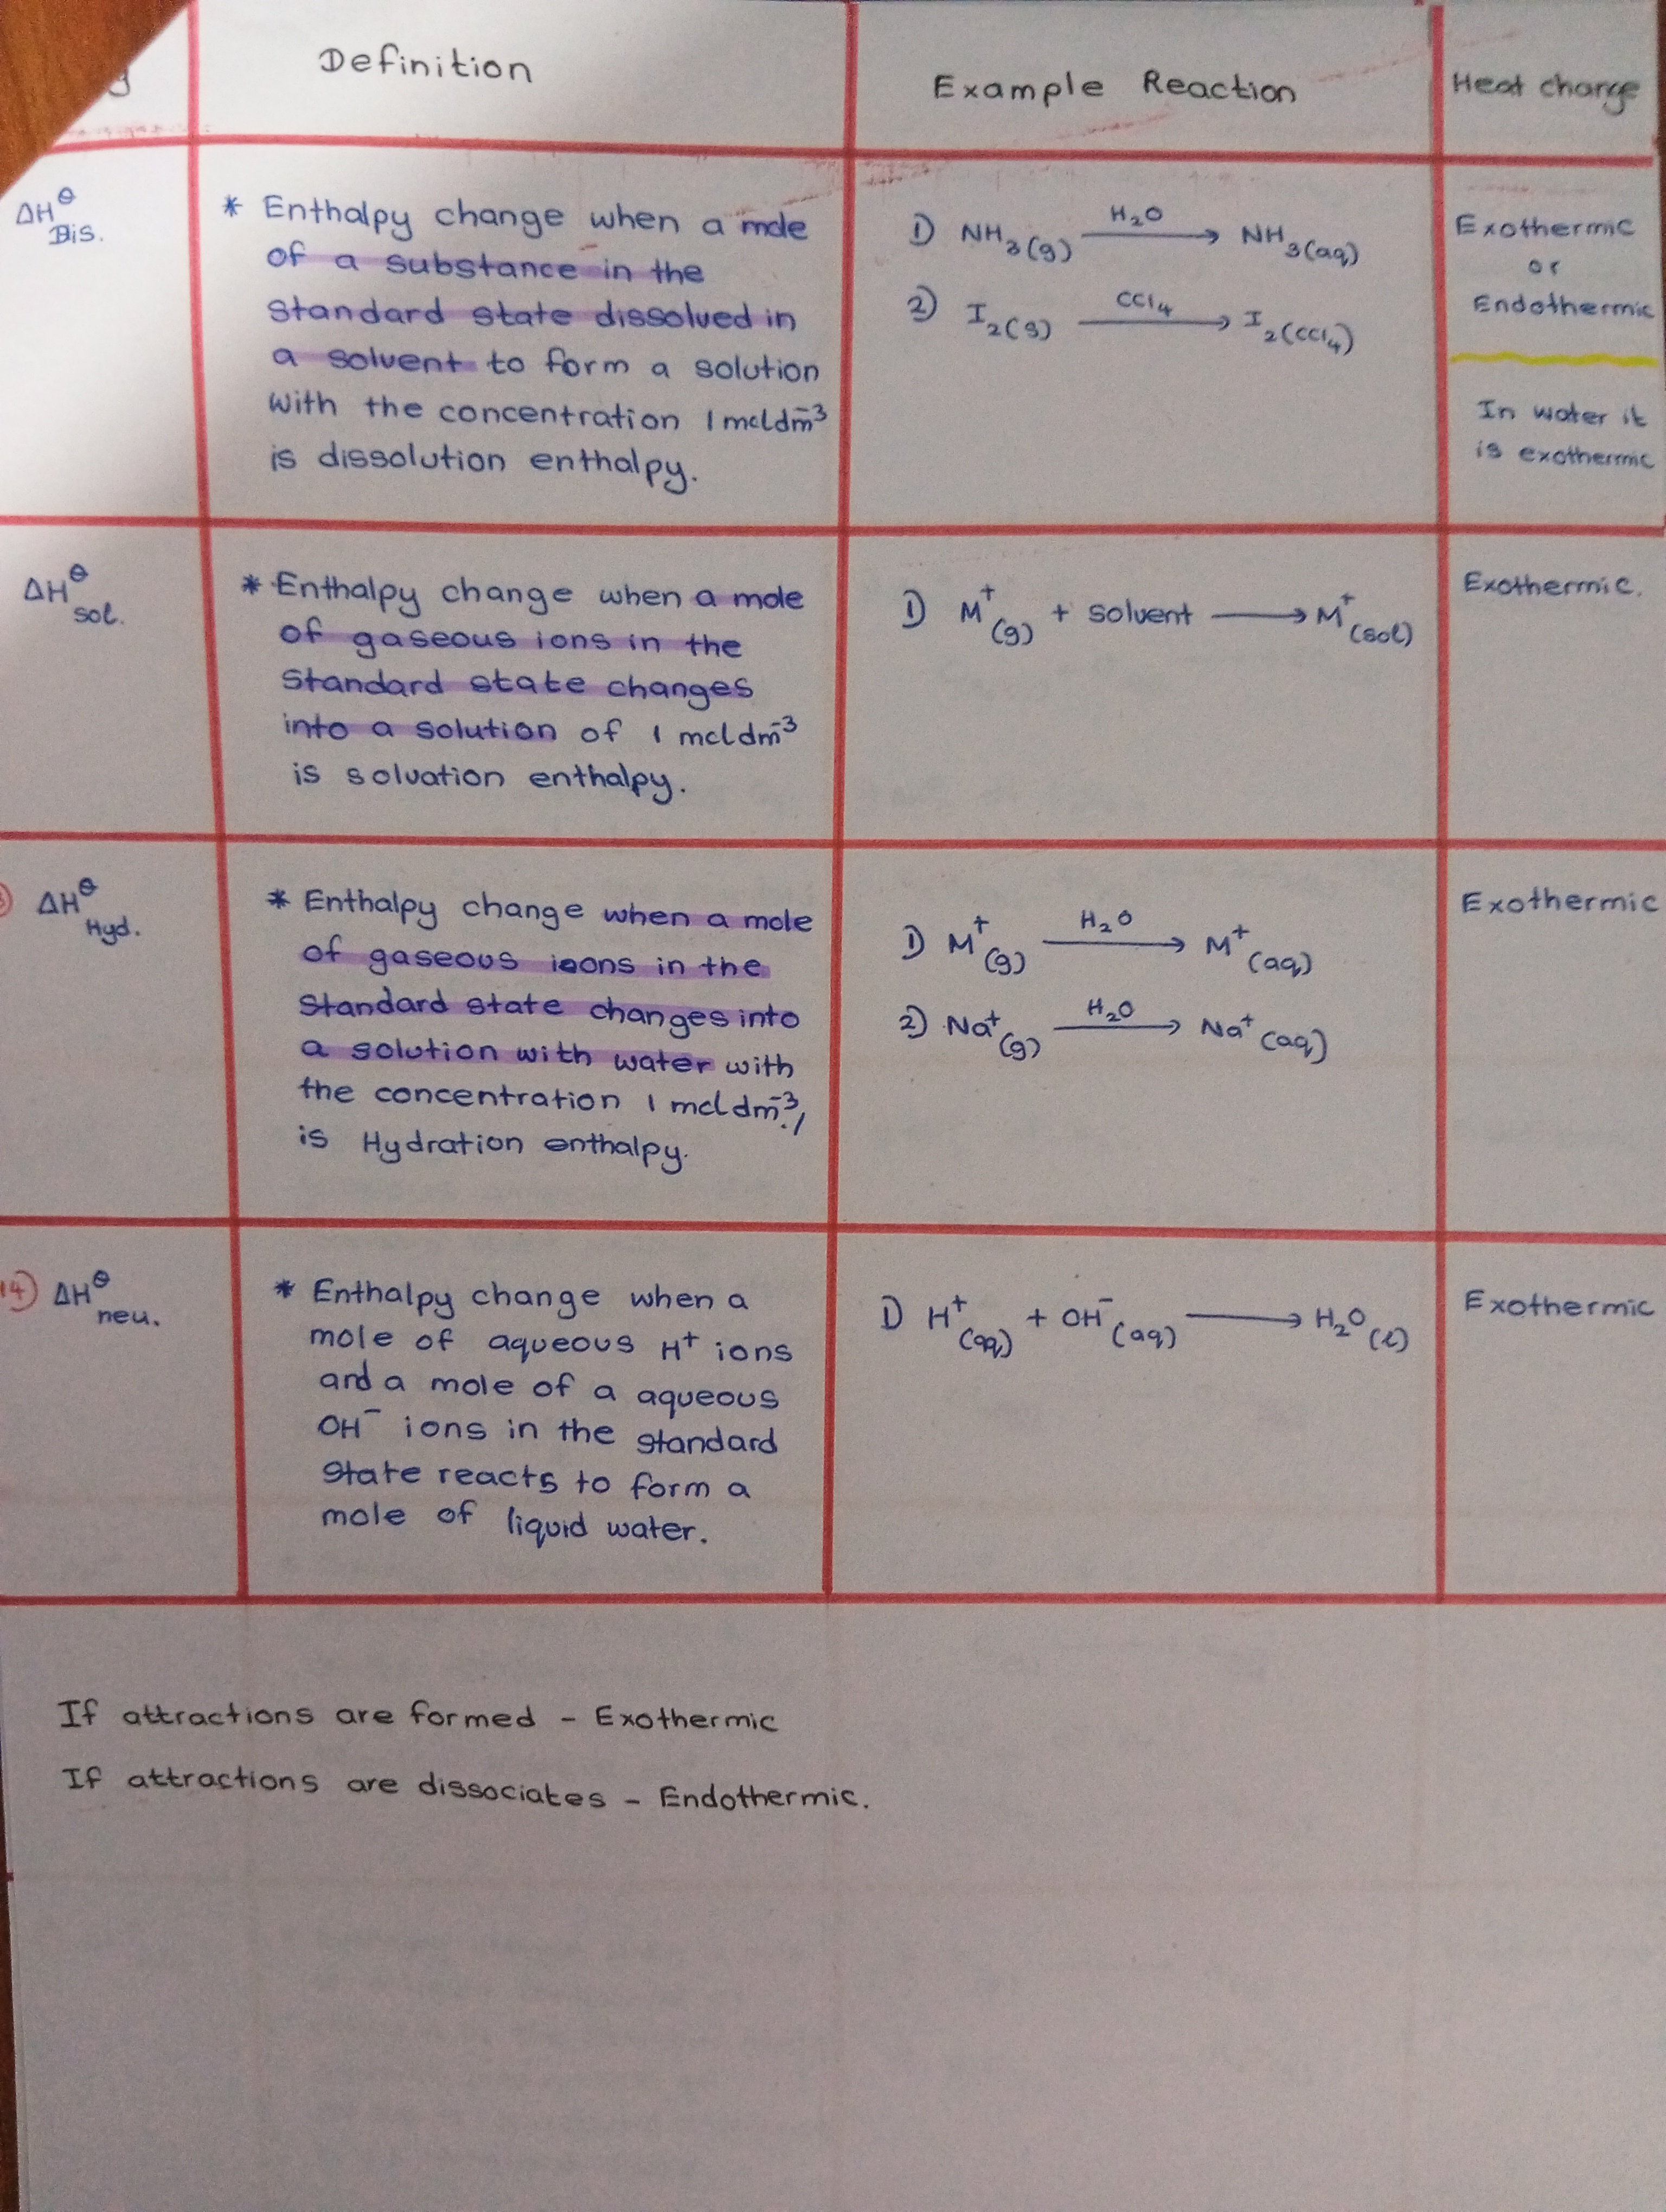 Definition
Example Reaction
Heat change
ΔH°Dis.
* Enthalpy change when a mole
of a substance in the
standard state dissolved in
a solvent to form a solution
with the concentration 1 moldm⁻³
is dissolution enthalpy.
1) NH₃(g) —H₂O→ NH₃(aq)
2) I₂(s) —CCl₄→ I₂(CCl₄)
Exothermic
or
Endothermic
In water it
is exothermic
ΔH°sol.
* Enthalpy change when a mole
of gaseous ions in the
standard state changes
into a solution of 1 moldm⁻³
is solvation enthalpy.
1) M⁺(g) + solvent → M⁺(sol)
Exothermic.
ΔH°Hyd.
* Enthalpy change when a mole
of gaseous ioons in the
standard state changes into
a solution with water with
the concentration 1 moldm⁻³,
is Hydration enthalpy.
1) M⁺(g) —H₂O→ M⁺(aq)
2) Na⁺(g) —H₂O→ Na⁺(aq)
Exothermic
14) ΔH°neu.
* Enthalpy change when a
mole of aqueous H⁺ ions
and a mole of a aqueous
OH⁻ ions in the standard
state reacts to form a
mole of liquid water.
1) H⁺(aq) + OH⁻(aq) → H₂O(l)
Exothermic
If attractions are formed - Exothermic
If attractions are dissociates - Endothermic.